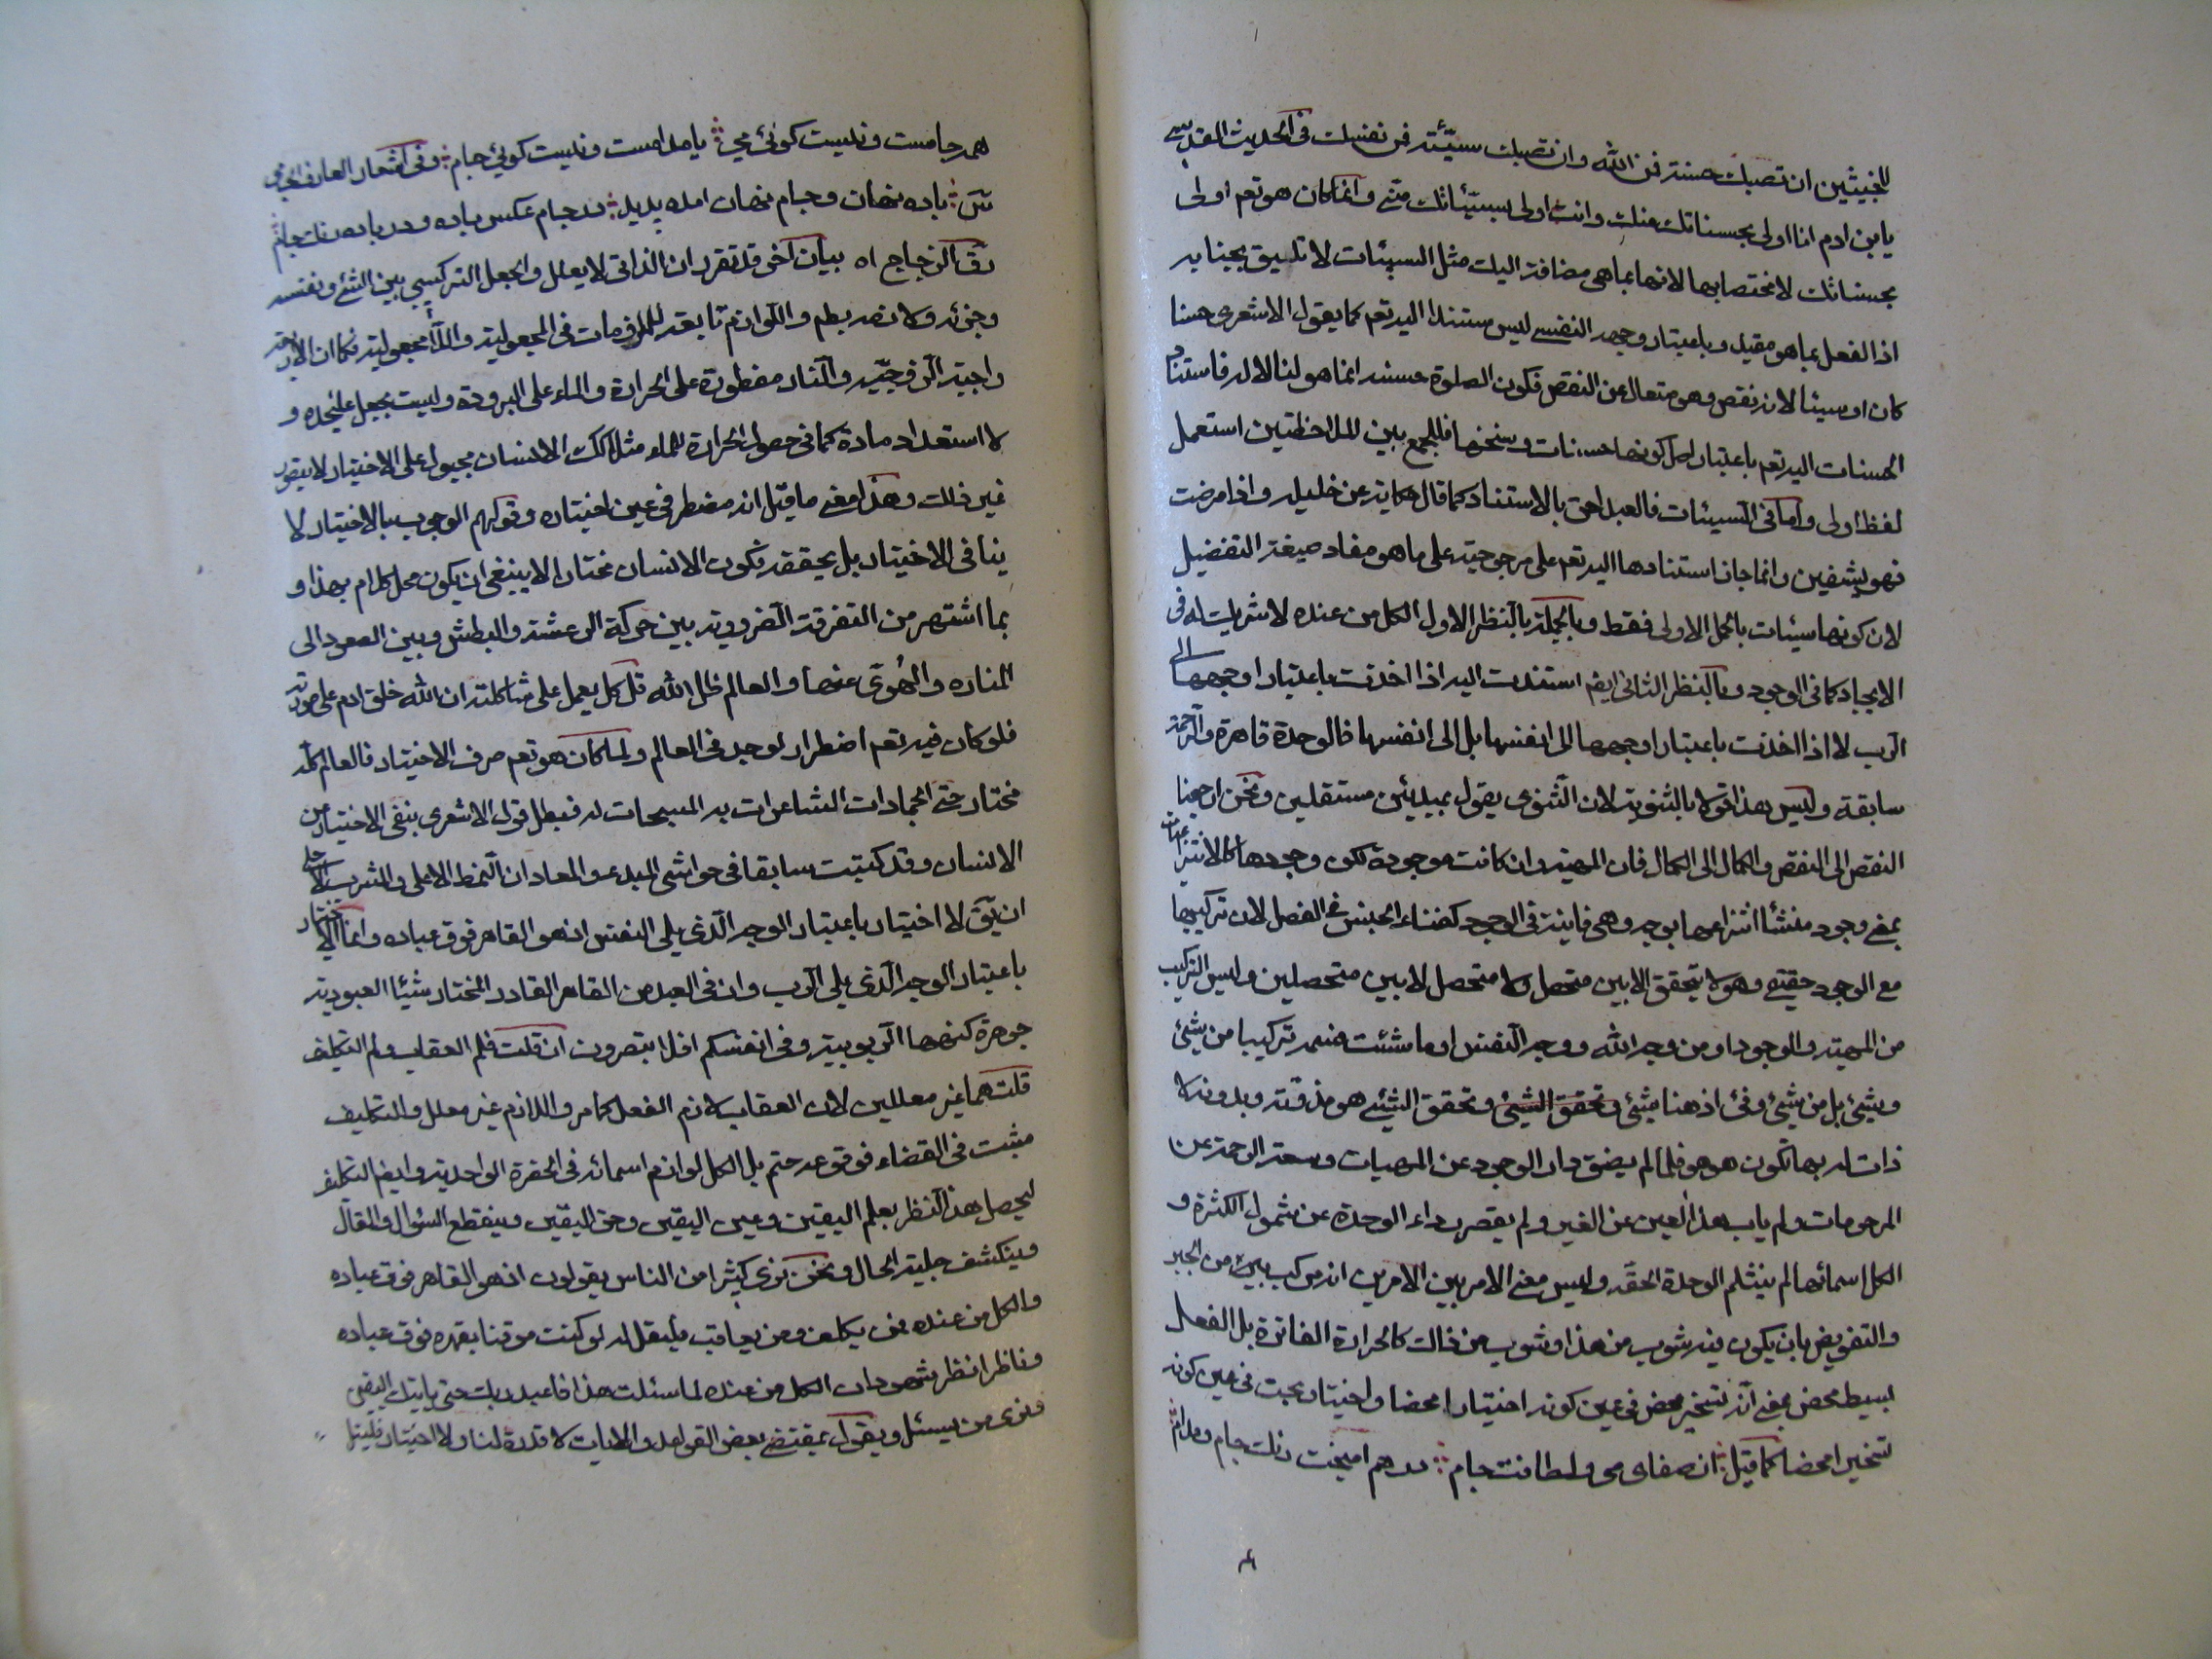 للخبيثين ان تصبك حسنة فمن الله وان تصبك سيئة فمن نفسك فى الحديث القدسى
يابن ادم انا اولى بحسناتك منك وانت اولى بسيئاتك منى وانما كان هو تعم اولى
بحسناتك لا مختصا بها لانها بما هى مضافة اليك مثل السيئات لا تليق بجنابه
اذ الفعل بما هو مقيد وباعتبار وجهه النفسى ليس مستندا اليه تعم كما يقول الاشعرى حسنا
كان او سيئا لانه نقص وهو متعال عن النقص فكون الصلوة حسنه انما هو لنا لا له فاستناد
الحسنات اليه تعم باعتبار اصل كونها حسنات وسنخها فللجمع بين الملاحظتين استعمل
لفظ اولى واما فى السيئات فالعبد احق بالاستناد كما قال حكاية عن خليله واذا مرضت
فهو يشفين وانما جاز استنادها اليه تعم على مرجوحية على ما هو مفاد صيغة التفضيل
لان كونها سيئات بالحمل الاولى فقط وبالجملة بالنظر الاول الكل من عنده لا شريك له فى
الايجاد كما فى الوجود وبالنظر الثانى ايضا استندت اليه اذا اخذت باعتبار اوجهها الى
الرب لا اذا اخذت باعتبار اوجهها الى انفسها بل الى انفسها فالوحدة قاهرة والرحمة
سابقة وليس هذا قولا بالثنوية لان الثنوى يقول بمبدئين مستقلين ونحن ارجعنا
النقص الى النقص والكمال الى الكمال فان المهية وان كانت موجودة لكن وجودها كالانتزاعيات
بمعنى وجود منشأ انتزاعها بوجه وهى فانية فى الوجود كفناء الجنس فى الفصل لان تركيبها
مع الوجود حقيقى وهو لا يتحقق الا بين متحصل ولا متحصل لا بين متحصلين وليس التركيب
من المهية والوجود او من وجه الله ووجه النفس او ما شئت فسمه تركيبا من شئ
وشئ بل من شئ وفئ اذ هنا شئ وتحقق الشئ وتحقق الشئ هو مذوته وبدونه لا
ذات له بها تكون هو هو فلما لم يضق دار الوجود عن المهيات وسعة الرحمة عن
المرحومات ولم ياب هذا العين عن الغير ولم يقصر رداء الوحدة عن شمول الكثرة و
الكل اسمائها لم ينثلم الوحدة الحقه وليس معنى الامر بين الامرين انه مركب من الجبر
والتفويض بان يكون فيه شوب من هذا وشوب من ذاك كالحرارة الفاترة بل الفعل
بسيط محض بمعنى انه تسخير محض فى عين كونه اختيارا محضا واختيار بحت فى عين كونه
تسخيرا محضا كما قيل از صفاى مى ولطافت جام درهم اميخت رنك جام ومدام
همه جامست ونيست كوئى مى يا مدامست ونيست كوئى جام وفى اشعار العارف الجامى
باده نهان وجام نهان امده پديد در جام عكس باده ودر باده رنك جام
رق الزجاج اه بيان اخر قد تقرر ان الذاتى لا يعلل والجعل التركيبى بين الشئ ونفسه
وجزئه ولازمه بطم واللوازم تابعة للملزومات فى المجعولية واللامجعولية فكما ان الاربعة
واجبة الزوجية والنار مفطورة على الحرارة والماء على البرودة وليست بجعل عليحده و
لا استعداد مادة كما فى حصول الحرارة للماء مثلا كك الانسان مجبول على الاختيار لا يتصور
غير ذلك وهذا معنى ما قيل انه مضطر فى عين اختياره وقولهم الوجوب بالاختيار لا
ينافى الاختيار بل يحققه فكون الانسان مختارا لا ينبغى ان يكون محل كلام بهذا و
بما اشتهر من التفرقة الضرورية بين حركة المرتعشة والبطش وبين الصعود الى
المنارة والهوى عنها والعالم ظل الله قل كل يعمل على شاكلته ان الله خلق ادم على صورته
فلو كان فيه تعم اضطرار لوجد فى العالم ولما كان هو تعم صرف الاختيار فالعالم كله
مختار حتى الجمادات الشاعرات به المسبحات له فبطل قول الاشعرى بنفى الاختيار عن
الانسان وقد كتبت سابقا فى حواشى المبدء والمعاد ان النمط الاعلى والمشرب الاحلى
ان يق لا اختيار باعتبار الوجه الذى يلى النفس اذ هو القاهر فوق عباده وانما الاختيار
باعتبار الوجه الذى يلى الرب وان فى العبد من القاهر القادر المختار شيئا العبودية
جوهرة كنهها الربوبية وفى انفسكم افلا تبصرون ان قلت فلم العقاب ولم التكليف
قلت هما غير معللين لان العقاب لازم الفعل كما مر واللازم غير معلل والتكليف
مثبت فى القضاء فوقوعه حتم بل الكل لوازم اسمائه فى الحضرة الواحدية وايضا التكليف
ليحصل هذا النظر بعلم اليقين وعين اليقين وحق اليقين وينقطع السؤال والمقال
وينكشف جلية الحال ونحن نرى كثيرا من الناس يقولون اذ هو القاهر فوق عباده
والكل من عنده فمن يكلف ومن يعاقب فليقل له لو كنت موقنا بقهره فوق عباده
وناظرا نظر شهود ان الكل من عنده لما سئلت هذا فاعبد ربك حتى ياتيك اليقين
ونرى من يسئل ويقول بمقتضى بعض القواعد والايات لا قدرة لنا ولا اختيار فليتل